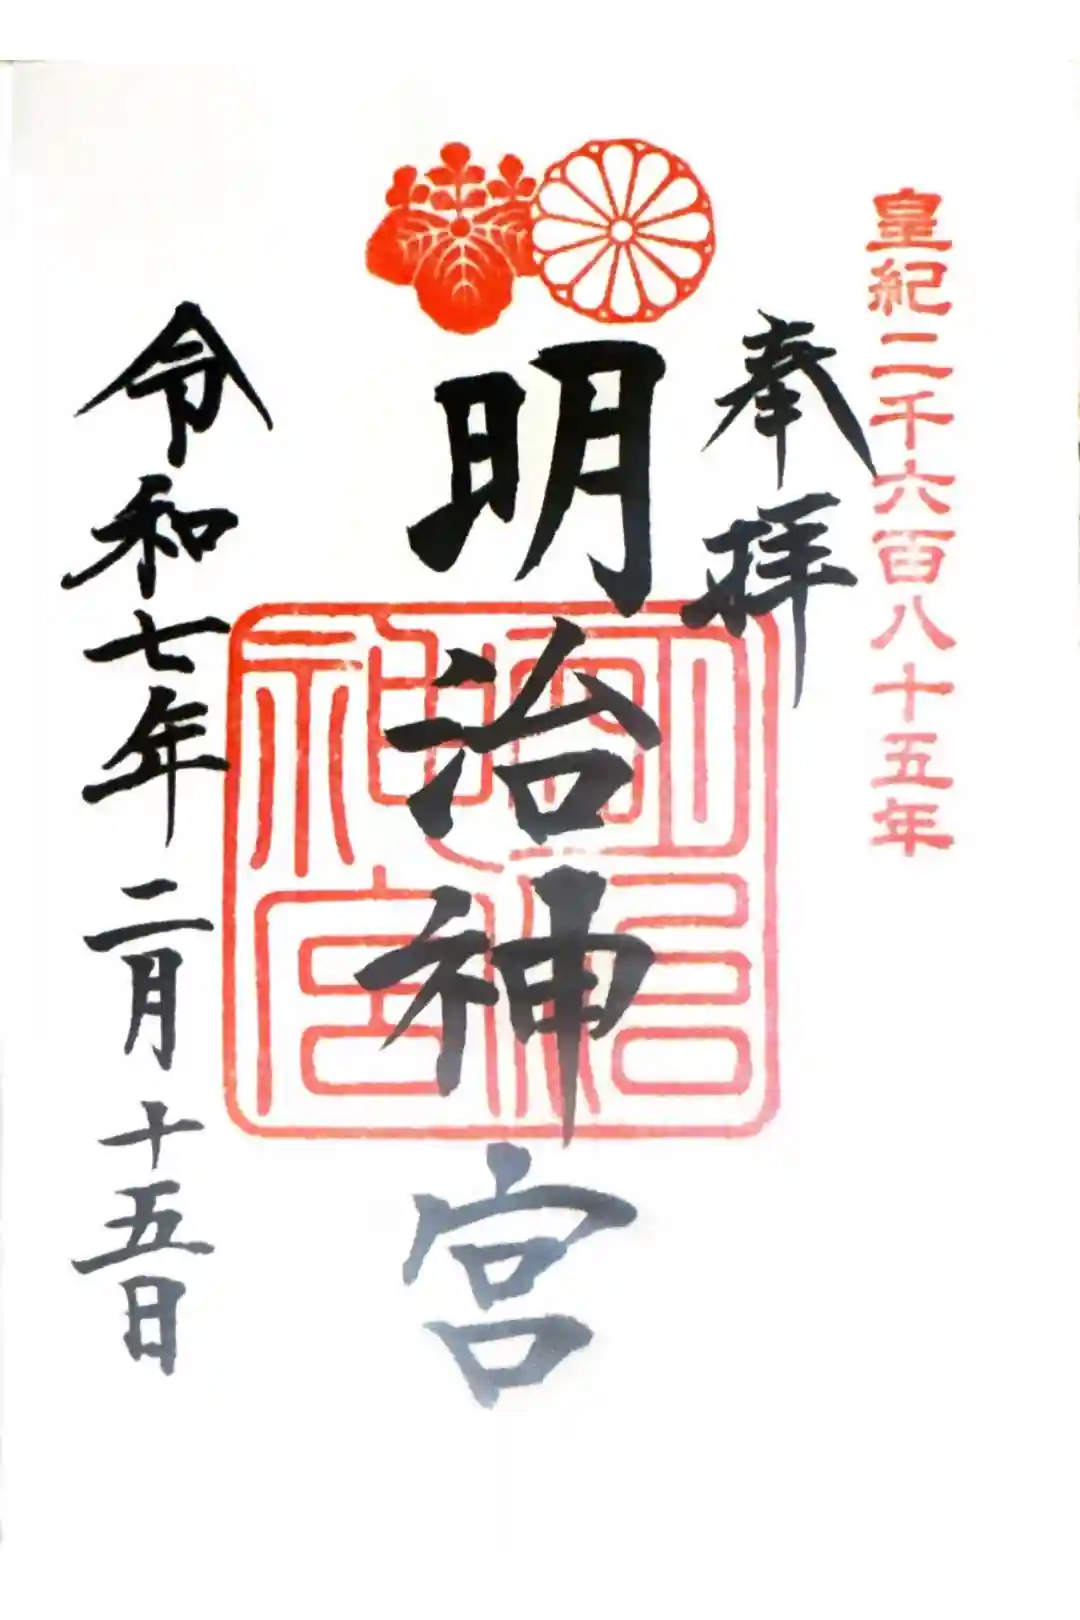 皇紀二千六百八十五年
奉拝
明治神宮
明治神宮
令和七年二月十五日